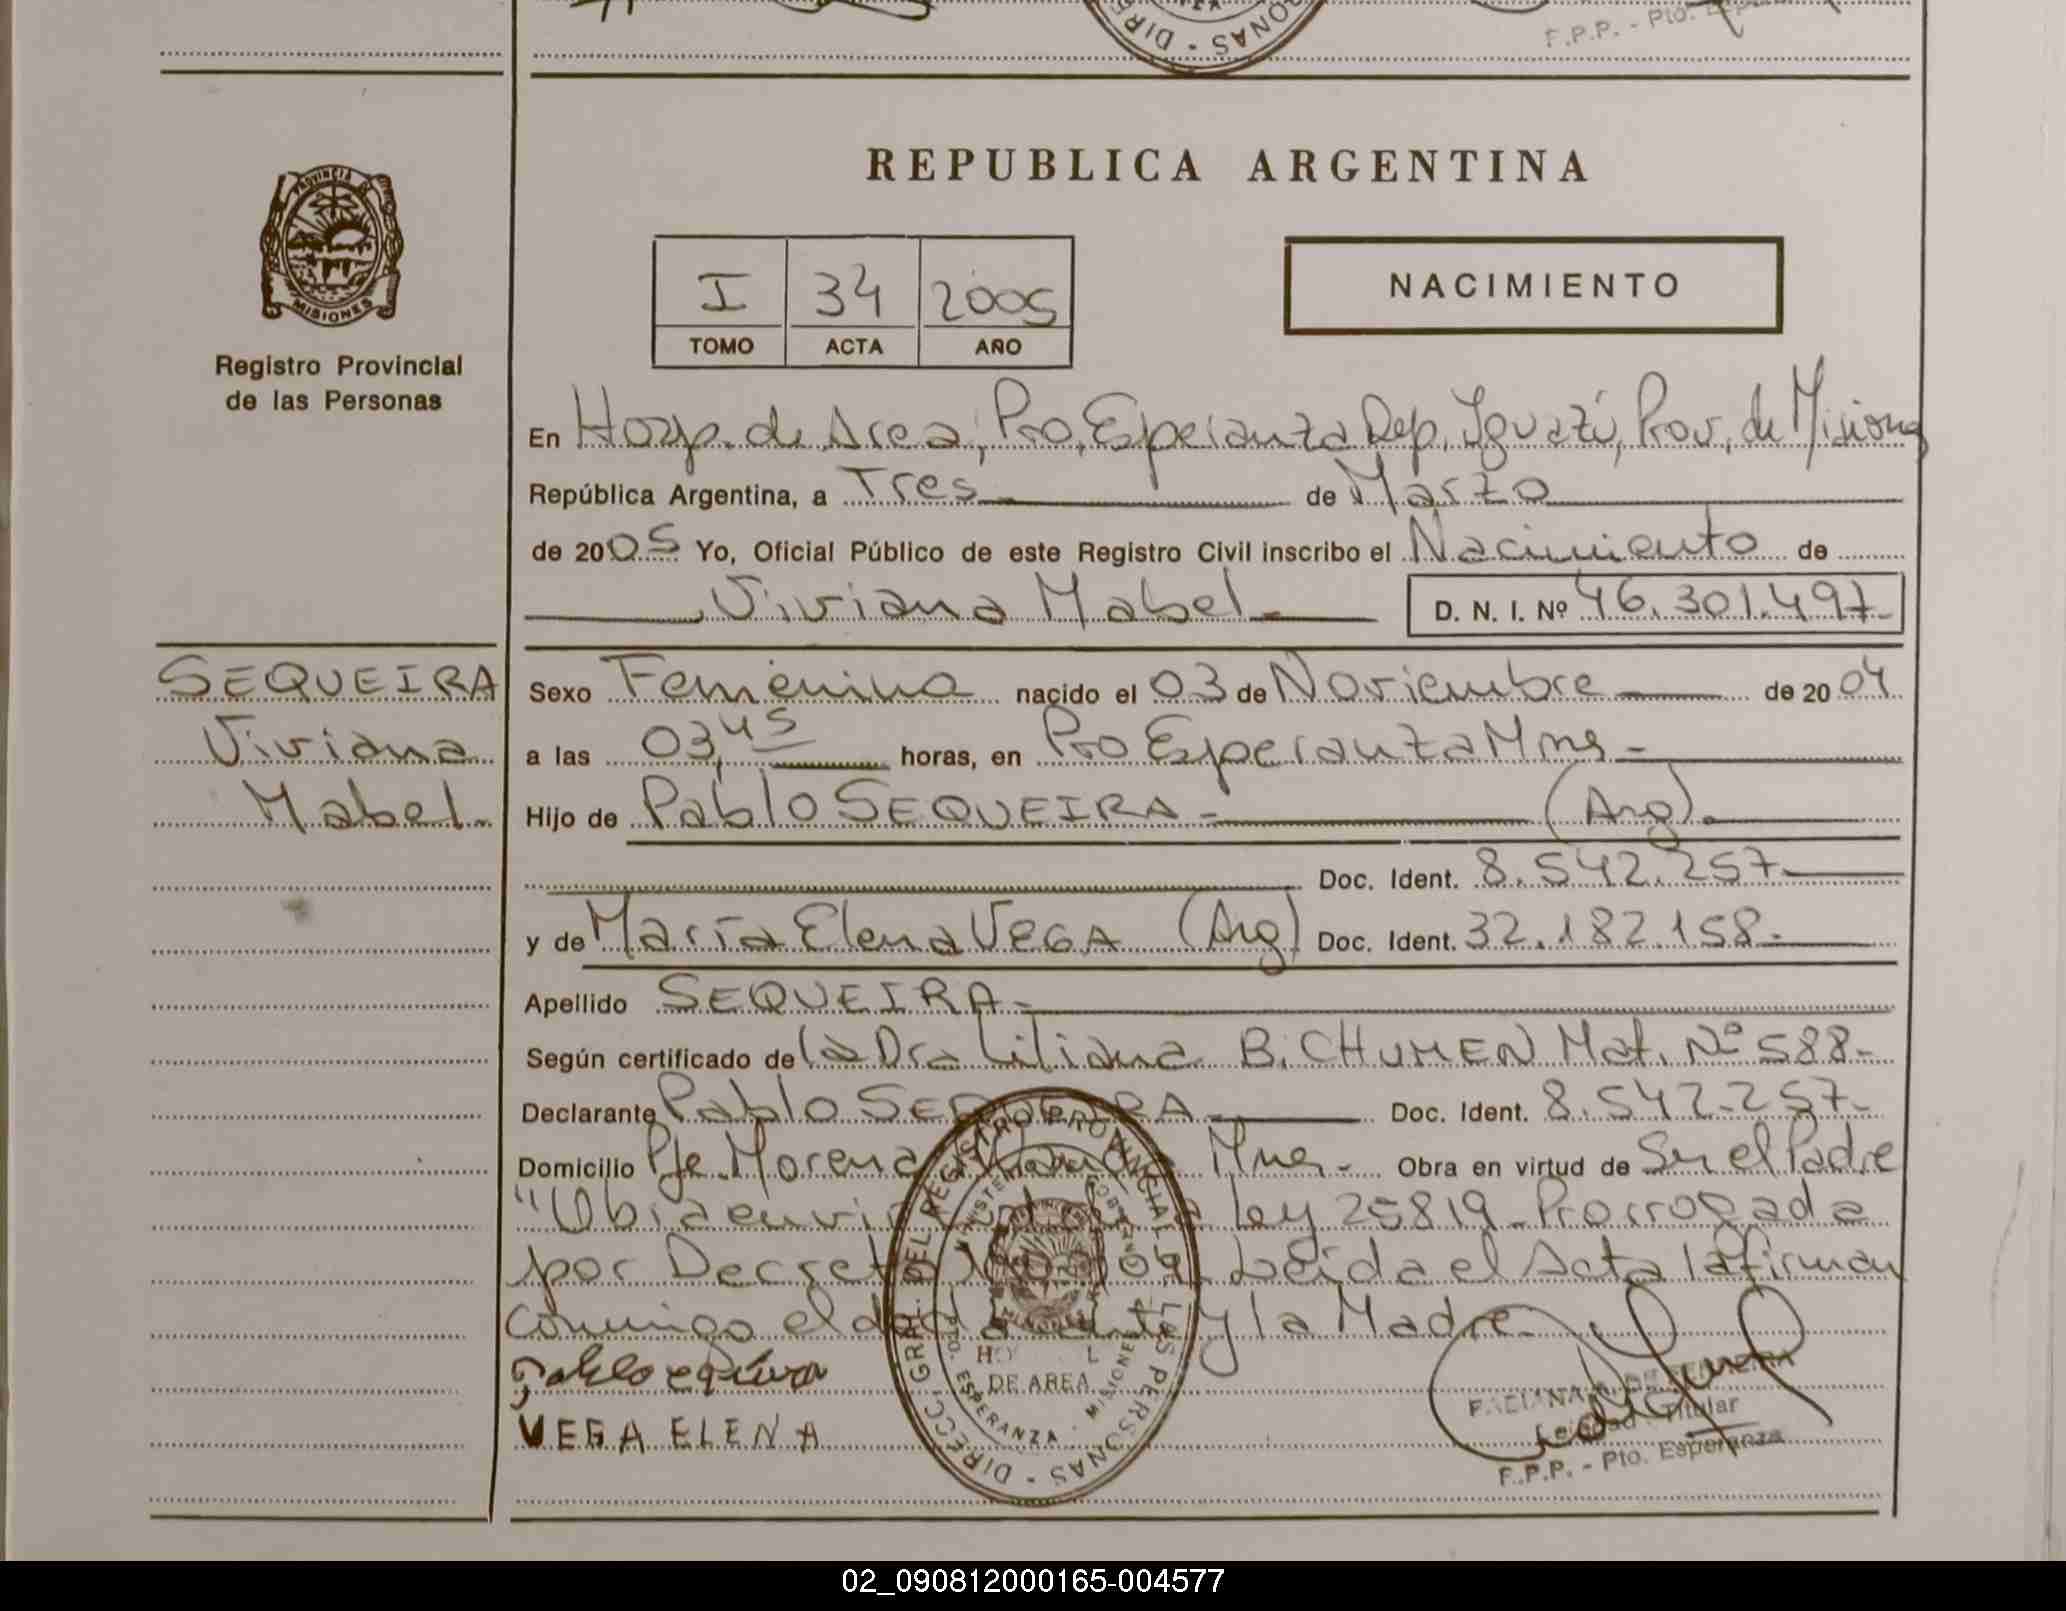 DIRE
ONAS
F.P.P. - Pto. Esp
PROVINCIA DE
MISIONES
Registro Provincial
de las Personas
REPUBLICA ARGENTINA
I 34 2005
TOMO ACTA AÑO
NACIMIENTO
En Hosp. de Area, Pto. Esperanza Dep. Iguazú, Prov. de Misiones
República Argentina, a Tres de Marzo
de 2005 Yo, Oficial Público de este Registro Civil inscribo el Nacimiento de
Viviana Mabel D. N. I. Nº 46.301.497-
SEQUEIRA
Viviana
Mabel.
Sexo Femenina nacido el 03 de Noviembre de 2004
a las 03,45 horas, en Pto Esperanza Mnes -
Hijo de Pablo SEQUEIRA - (Arg).
Doc. Ident. 8.542.257-
y de María Elena VEGA (Arg) Doc. Ident. 32.182.158.-
Apellido SEQUEIRA-
Según certificado de la Dra Liliana B. CHUMEN Mat. Nº 588-
Declarante Pablo SEQUEIRA - Doc. Ident. 8.542.257-
Domicilio Pje. Morena Mnes.- Obra en virtud de Ser el Padre
Ley 25819 - Prorrogada
por Decreto 09. Leída el Acta la firman
conmigo el declarante y la Madre.
VEGA ELENA
DIRECC. GRAL. DEL REGISTRO PROVINCIAL DE LAS PERSONAS
DE AREA
PTO. ESPERANZA - MISIONES
Titular
F.P.P. - Pto. Esperanza
02_090812000165-004577